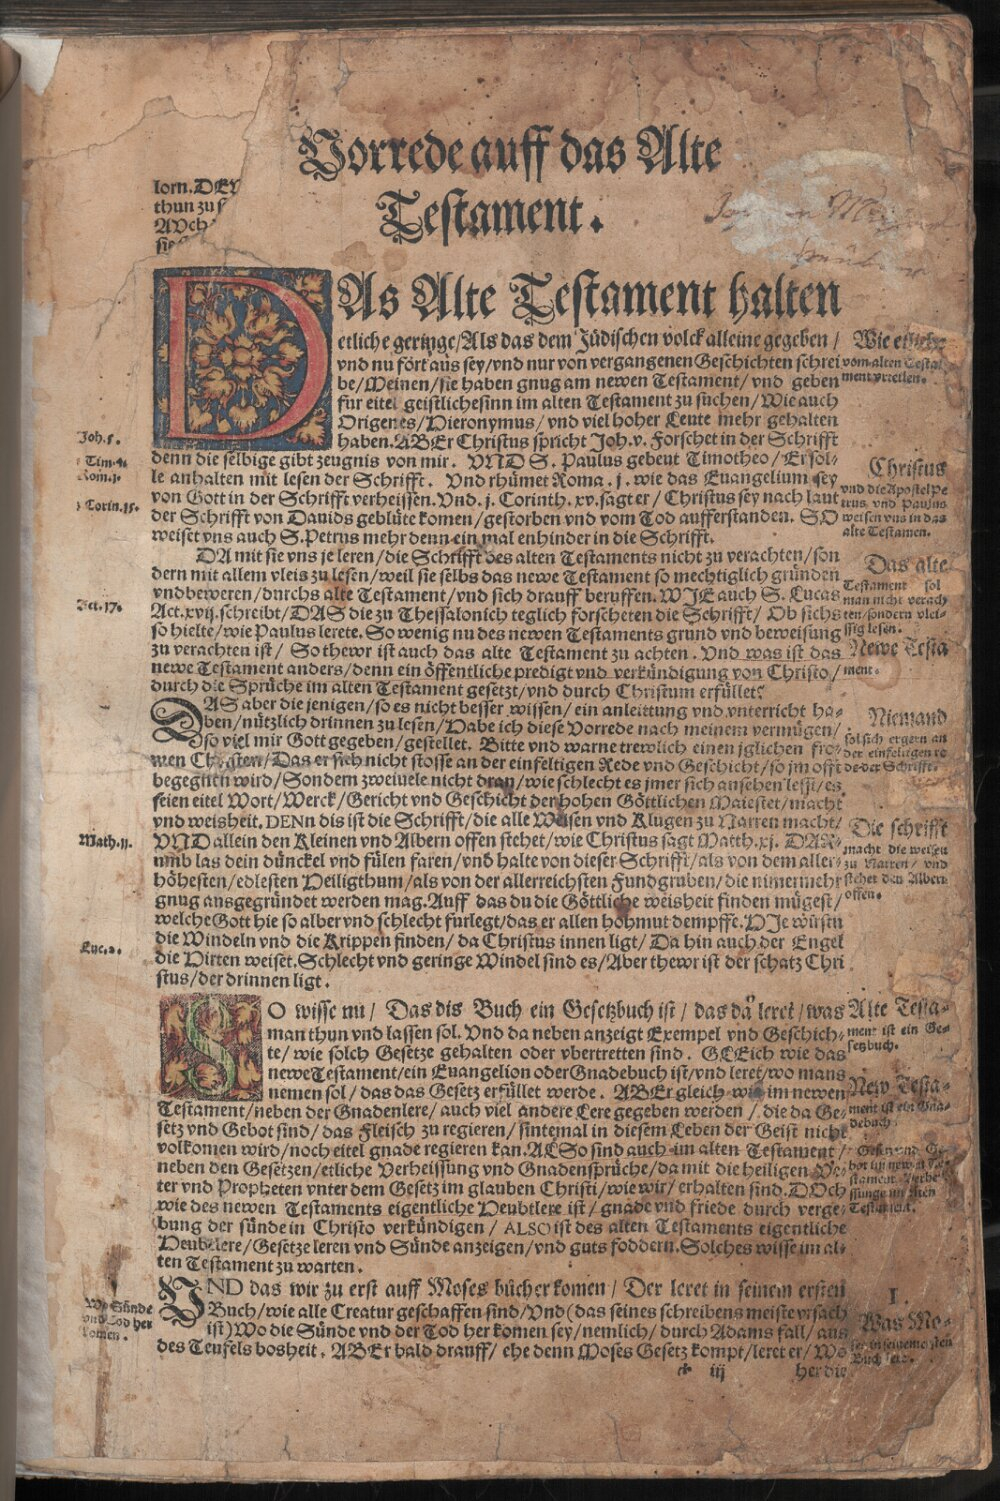 Vorrede auff das Alte
Testament.
lorn. DEN
thun zu
DAs Alte Testament halten
etliche geringe/Als das dem Jüdischen volck alleine gegeben/
vnd nu fort aus sey/vnd nur von vergangenen Geschichten schrei
be/Meinen/sie haben gnug am newen Testament/vnd geben
fur eitel geistlichesinn im alten Testament zu suchen/Wie auch
Origenes/Hieronymus/vnd viel hoher Leute mehr gehalten
haben. ABEr Christus spricht Joh. v. Forschet in der Schrifft
denn die selbige gibt zeugnis von mir. VND S. Paulus gebeut Timotheo/Er sol-
le anhalten mit lesen der Schrifft. Vnd rhümet Roma. j. wie das Euangelium sey
von Gott in der Schrifft verheissen. Vnd. j. Corinth. xv. sagt er/Christus sey nach laut
der Schrifft von Dauids geblüte komen/gestorben vnd vom Tod aufferstanden. SO
weiset vns auch S. Petrus mehr denn ein mal enhinder in die Schrifft.
DA mit sie vns je leren/die Schrifft des alten Testaments nicht zu verachten/son
dern mit allem vleis zu lesen/weil sie selbs das newe Testament so mechtiglich gründen
vnd beweren/durchs alte Testament/vnd sich drauff beruffen. WIE auch S. Lucas
Act. xvij. schreibt/DAS die zu Thessalonich teglich forscheten die Schrifft/Ob sichs
so hielte/wie Paulus lerete. So wenig nu des newen Testaments grund vnd beweisung
zu verachten ist/So thewr ist auch das alte Testament zu achten. Vnd was ist das
newe Testament anders/denn ein öffentliche predigt vnd verkündigung von Christo/
durch die Sprüche im alten Testament gesetzt/vnd durch Christum erfüllet?
DAS aber die jenigen/so es nicht besser wissen/ein anleittung vnd vnterricht ha-
ben/nützlich drinnen zu lesen/Habe ich diese Vorrede nach meinem vermügen/
so viel mir Gott gegeben/gestellet. Bitte vnd warne trewlich einen jglichen fro-
men Christen/Das er sich nicht stosse an der einfeltigen Rede vnd Geschicht/so jm offt
begegnen wird/Sondern zweiuele nicht dran/wie schlecht es jmer sich ansehen lesst/es
seien eitel Wort/Werck/Gericht vnd Geschicht der hohen Göttlichen Maiestet/macht
vnd weisheit. DENn dis ist die Schrifft/die alle Weisen vnd Klugen zu Narren macht/
VND allein den Kleinen vnd Albern offen stehet/wie Christus sagt Matth. xj. DAR-
umb las dein dünckel vnd fülen faren/vnd halte von dieser Schrifft/als von dem aller-
höhesten/edlesten Heiligthum/als von der allerreichsten Fundgruben/die nimermehr
gnug ausgegründet werden mag. Auff das du die Göttliche weisheit finden mügest/
welche Gott hie so alber vnd schlecht furlegt/das er allen hohmut dempffe. HIe wirstu
die Windeln vnd die Krippen finden/da Christus innen ligt/Da hin auch der Engel
die Hirten weiset. Schlecht vnd geringe Windel sind es/Aber thewr ist der schatz Chri
stus/der drinnen ligt.
SO wisse nu/Das dis Buch ein Gesetzbuch ist/das da leret/was
man thun vnd lassen sol. Vnd da neben anzeigt Exempel vnd Geschich-
te/wie solch Gesetze gehalten oder vbertretten sind. GLEich wie das
newe Testament/ein Euangelion oder Gnadebuch ist/vnd leret/wo mans
nemen sol/das das Gesetz erfüllet werde. ABEr gleich wie im newen
Testament/neben der Gnadenlere/auch viel andere Lere gegeben werden/die da Ge-
setz vnd Gebot sind/das Fleisch zu regieren/sintemal in diesem Leben der Geist nicht
volkomen wird/noch eitel gnade regieren kan. ALSo sind auch im alten Testament/
neben den Gesetzen/etliche Verheissung vnd Gnadensprüche/da mit die heiligen Ve-
ter vnd Propheten vnter dem Gesetz im glauben Christi/wie wir/erhalten sind. DOch
wie des newen Testaments eigentliche Heubtlere ist/gnade vnd friede durch verge-
bung der sünde in Christo verkündigen/ALSO ist des alten Testaments eigentliche
Heubtlere/Gesetze leren vnd Sünde anzeigen/vnd guts foddern. Solches wisse im al-
ten Testament zu warten.
VND das wir zu erst auff Moses bücher komen/Der leret in seinem ersten
Buch/wie alle Creatur geschaffen sind/Vnd (das seines schreibens meiste vrsach
ist) Wo die Sünde vnd der Tod her komen sey/nemlich/durch Adams fall/aus
des Teufels bosheit. ABEr bald drauff/ehe denn Moses Gesetz kompt/leret er/Wo
iij
her die
Joh. 5.
Tim. 4.
Rom. 1.
1 Corin. 15.
Act. 17.
Math. 11.
Luc. 2.
Wo Sünde
vnd Tod her
komen.
Wie etliche
vom alten Testa-
ment vrteilen.
Christus
vnd die Apostel Pe
trus vnd Paulus
weisen vns in das
alte Testamen.
Das alte
Testament sol
man nicht verach
ten/sondern vlei-
ssig lesen.
Newe Testa
ment.
Niemand
sol sich ergern an
der einfeltigen re
de der Schrifft.
Die schrifft
macht die weisen
zu Narren/vnd
stehet den Albern
offen.
Alte Testa-
ment ist ein Ge-
setzbuch.
New Testa-
ment ist ein Gna-
debuch.
I.
Was Mo-